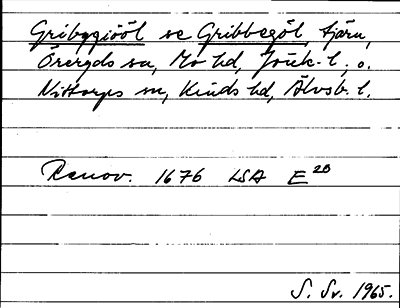 Gribygiööl se Gribbegöl, tjärn,
Öreryds sn, Mo hd, Jönk. l., o.
Nittorps sn, Kinds hd, Älvsb. l.
Renov. 1676 LSA E 2B
S. Sv. 1965.